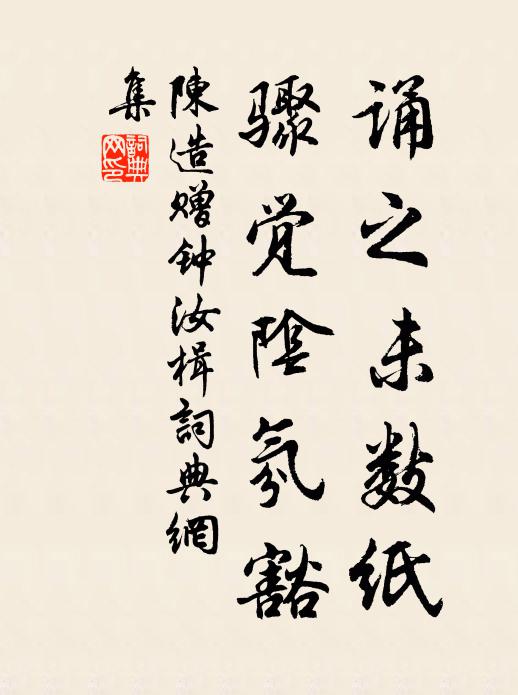 诵之未数纸
骤觉阴氛豁
陳造赠钟汝楫詞典網
集
詞典網印